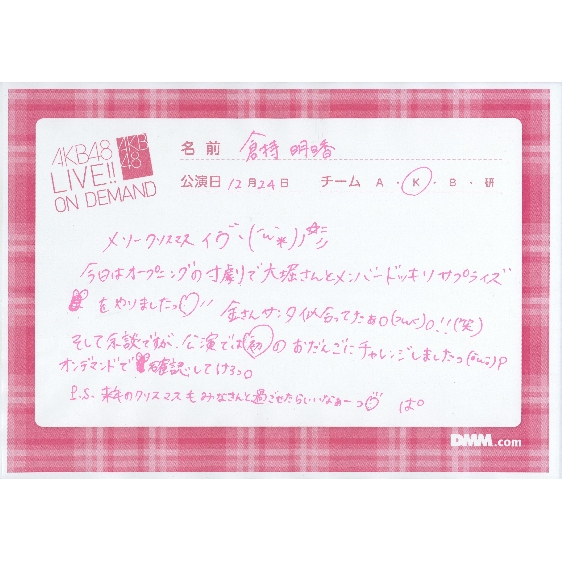 AKB48
LIVE!!
ON DEMAND
AKB
48
名前 倉持明日香
公演日 12月24日 チーム A・K・B・研
メリークリスマスイヴ
今日はオープニングの寸劇で大堀さんとメンバードッキリサプライズ
をやりましたっ♡!!
金さんサンタ似合ってたぁ!!(笑)
そして余談ですが、公演では初のおだんごにチャレンジしましたっ
オンデマンドで確認してけろっ。
P.S. 来年のクリスマスもみなさんと過ごせたらいいなぁーっ♡ ぱ。
DMM.com